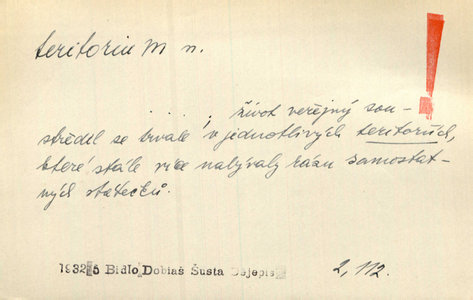 teritorium n.
... ; život veřejný sou-
středil se trvale v jednotlivých teritoriích,
které stále více nabývaly rázu samostat-
ných státečků.
1932 5 Bidlo Dobiaš Šusta Dějepis 2, 112.
!